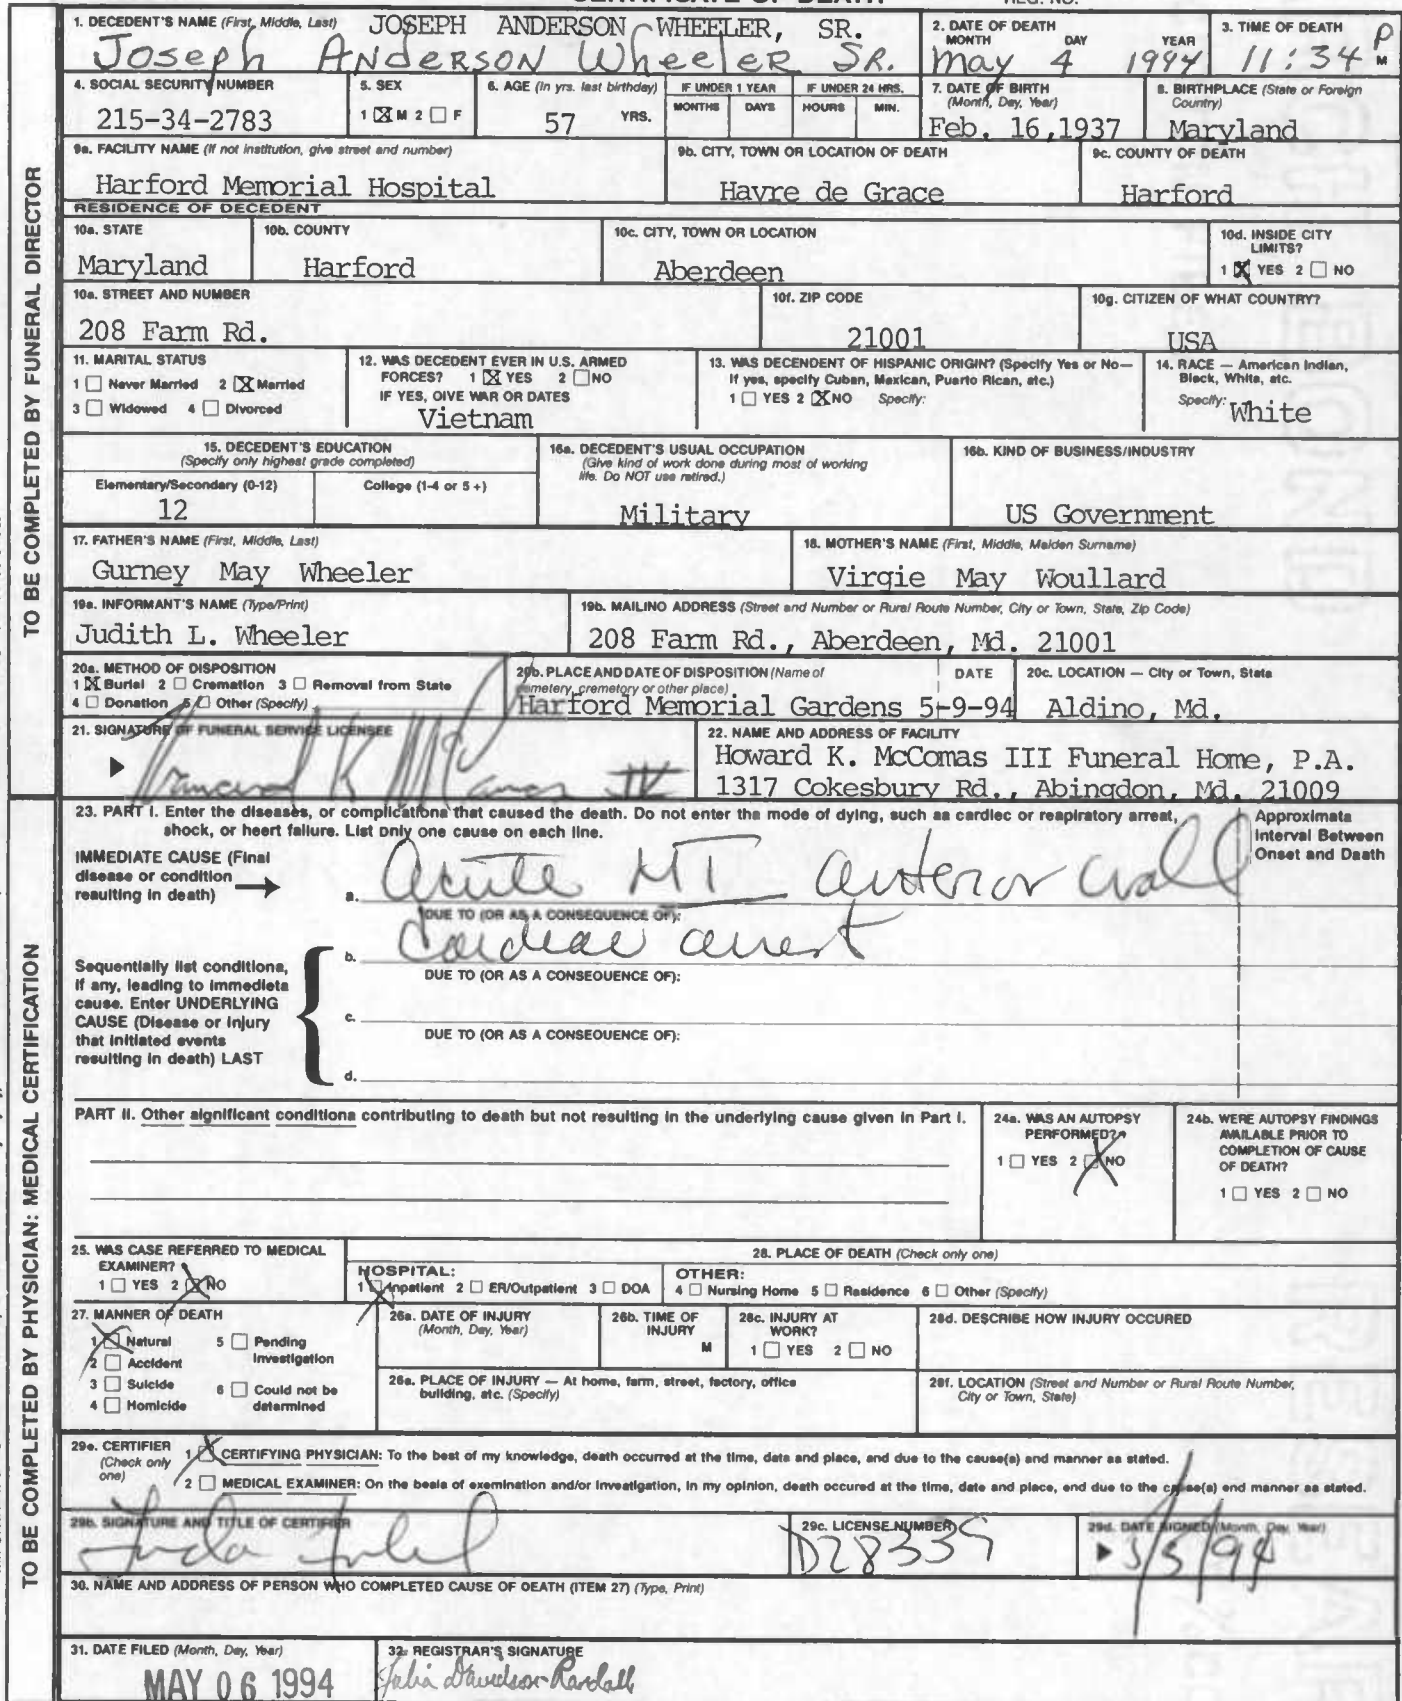 1. DECEDENT'S NAME (First, Middle, Last) JOSEPH ANDERSON WHEELER, SR.
Joseph Anderson Wheeler SR.
2. DATE OF DEATH
MONTH DAY YEAR
May 4 1994
3. TIME OF DEATH
11:34 P M
4. SOCIAL SECURITY NUMBER
215-34-2783
5. SEX
1 ☒ M 2 ☐ F
6. AGE (In yrs. last birthday)
57 YRS.
IF UNDER 1 YEAR
MONTHS DAYS
IF UNDER 24 HRS.
HOURS MIN.
7. DATE OF BIRTH
(Month, Day, Year)
Feb. 16,1937
8. BIRTHPLACE (State or Foreign
Country)
Maryland
9a. FACILITY NAME (If not institution, give street and number)
Harford Memorial Hospital
9b. CITY, TOWN OR LOCATION OF DEATH
Havre de Grace
9c. COUNTY OF DEATH
Harford
RESIDENCE OF DECEDENT
10a. STATE
Maryland
10b. COUNTY
Harford
10c. CITY, TOWN OR LOCATION
Aberdeen
10d. INSIDE CITY
LIMITS?
1 ☒ YES 2 ☐ NO
10e. STREET AND NUMBER
208 Farm Rd.
10f. ZIP CODE
21001
10g. CITIZEN OF WHAT COUNTRY?
USA
11. MARITAL STATUS
1 ☐ Never Married 2 ☒ Married
3 ☐ Widowed 4 ☐ Divorced
12. WAS DECEDENT EVER IN U.S. ARMED
FORCES? 1 ☒ YES 2 ☐ NO
IF YES, GIVE WAR OR DATES
Vietnam
13. WAS DECENDENT OF HISPANIC ORIGIN? (Specify Yes or No—
If yes, specify Cuban, Mexican, Puerto Rican, etc.)
1 ☐ YES 2 ☒ NO Specify:
14. RACE — American Indian,
Black, White, etc.
Specify: White
15. DECEDENT'S EDUCATION
(Specify only highest grade completed)
Elementary/Secondary (0-12) College (1-4 or 5+)
12
16a. DECEDENT'S USUAL OCCUPATION
(Give kind of work done during most of working
life. Do NOT use retired.)
Military
16b. KIND OF BUSINESS/INDUSTRY
US Government
17. FATHER'S NAME (First, Middle, Last)
Gurney May Wheeler
18. MOTHER'S NAME (First, Middle, Maiden Surname)
Virgie May Woullard
19a. INFORMANT'S NAME (Type/Print)
Judith L. Wheeler
19b. MAILING ADDRESS (Street and Number or Rural Route Number, City or Town, State, Zip Code)
208 Farm Rd., Aberdeen, Md. 21001
20a. METHOD OF DISPOSITION
1 ☒ Burial 2 ☐ Cremation 3 ☐ Removal from State
4 ☐ Donation 5 ☐ Other (Specify)
20b. PLACE AND DATE OF DISPOSITION (Name of
cemetery, crematory or other place) DATE
Harford Memorial Gardens 5-9-94
20c. LOCATION — City or Town, State
Aldino, Md.
21. SIGNATURE OF FUNERAL SERVICE LICENSEE
22. NAME AND ADDRESS OF FACILITY
Howard K. McComas III Funeral Home, P.A.
1317 Cokesbury Rd., Abingdon, Md. 21009
TO BE COMPLETED BY FUNERAL DIRECTOR
23. PART I. Enter the diseases, or complications that caused the death. Do not enter the mode of dying, such as cardiac or respiratory arrest,
shock, or heart failure. List only one cause on each line.
Approximate
Interval Between
Onset and Death
IMMEDIATE CAUSE (Final
disease or condition
resulting in death) →
a. Acute MI anterior wall
DUE TO (OR AS A CONSEQUENCE OF):
b. Cardiac arrest
DUE TO (OR AS A CONSEQUENCE OF):
c.
DUE TO (OR AS A CONSEQUENCE OF):
d.
Sequentially list conditions,
if any, leading to immediate
cause. Enter UNDERLYING
CAUSE (Disease or injury
that initiated events
resulting in death) LAST
PART II. Other significant conditions contributing to death but not resulting in the underlying cause given in Part I.
24a. WAS AN AUTOPSY
PERFORMED?
1 ☐ YES 2 ☒ NO
24b. WERE AUTOPSY FINDINGS
AVAILABLE PRIOR TO
COMPLETION OF CAUSE
OF DEATH?
1 ☐ YES 2 ☐ NO
25. WAS CASE REFERRED TO MEDICAL
EXAMINER?
1 ☐ YES 2 ☒ NO
26. PLACE OF DEATH (Check only one)
HOSPITAL:
1 ☒ Inpatient 2 ☐ ER/Outpatient 3 ☐ DOA
OTHER:
4 ☐ Nursing Home 5 ☐ Residence 6 ☐ Other (Specify)
27. MANNER OF DEATH
1 ☒ Natural 5 ☐ Pending
Investigation
2 ☐ Accident
3 ☐ Suicide 6 ☐ Could not be
determined
4 ☐ Homicide
28a. DATE OF INJURY
(Month, Day, Year)
28b. TIME OF
INJURY
M
28c. INJURY AT
WORK?
1 ☐ YES 2 ☐ NO
28d. DESCRIBE HOW INJURY OCCURED
28e. PLACE OF INJURY — At home, farm, street, factory, office
building, etc. (Specify)
28f. LOCATION (Street and Number or Rural Route Number,
City or Town, State)
29a. CERTIFIER
(Check only
one)
1 ☒ CERTIFYING PHYSICIAN: To the best of my knowledge, death occurred at the time, date and place, and due to the cause(s) and manner as stated.
2 ☐ MEDICAL EXAMINER: On the basis of examination and/or investigation, in my opinion, death occured at the time, date and place, and due to the cause(s) and manner as stated.
29b. SIGNATURE AND TITLE OF CERTIFIER
29c. LICENSE NUMBER
D28339
29d. DATE SIGNED (Month, Day, Year)
5/5/94
30. NAME AND ADDRESS OF PERSON WHO COMPLETED CAUSE OF DEATH (ITEM 27) (Type, Print)
31. DATE FILED (Month, Day, Year)
MAY 06 1994
32. REGISTRAR'S SIGNATURE
Julia Davidson-Randall
TO BE COMPLETED BY PHYSICIAN: MEDICAL CERTIFICATION